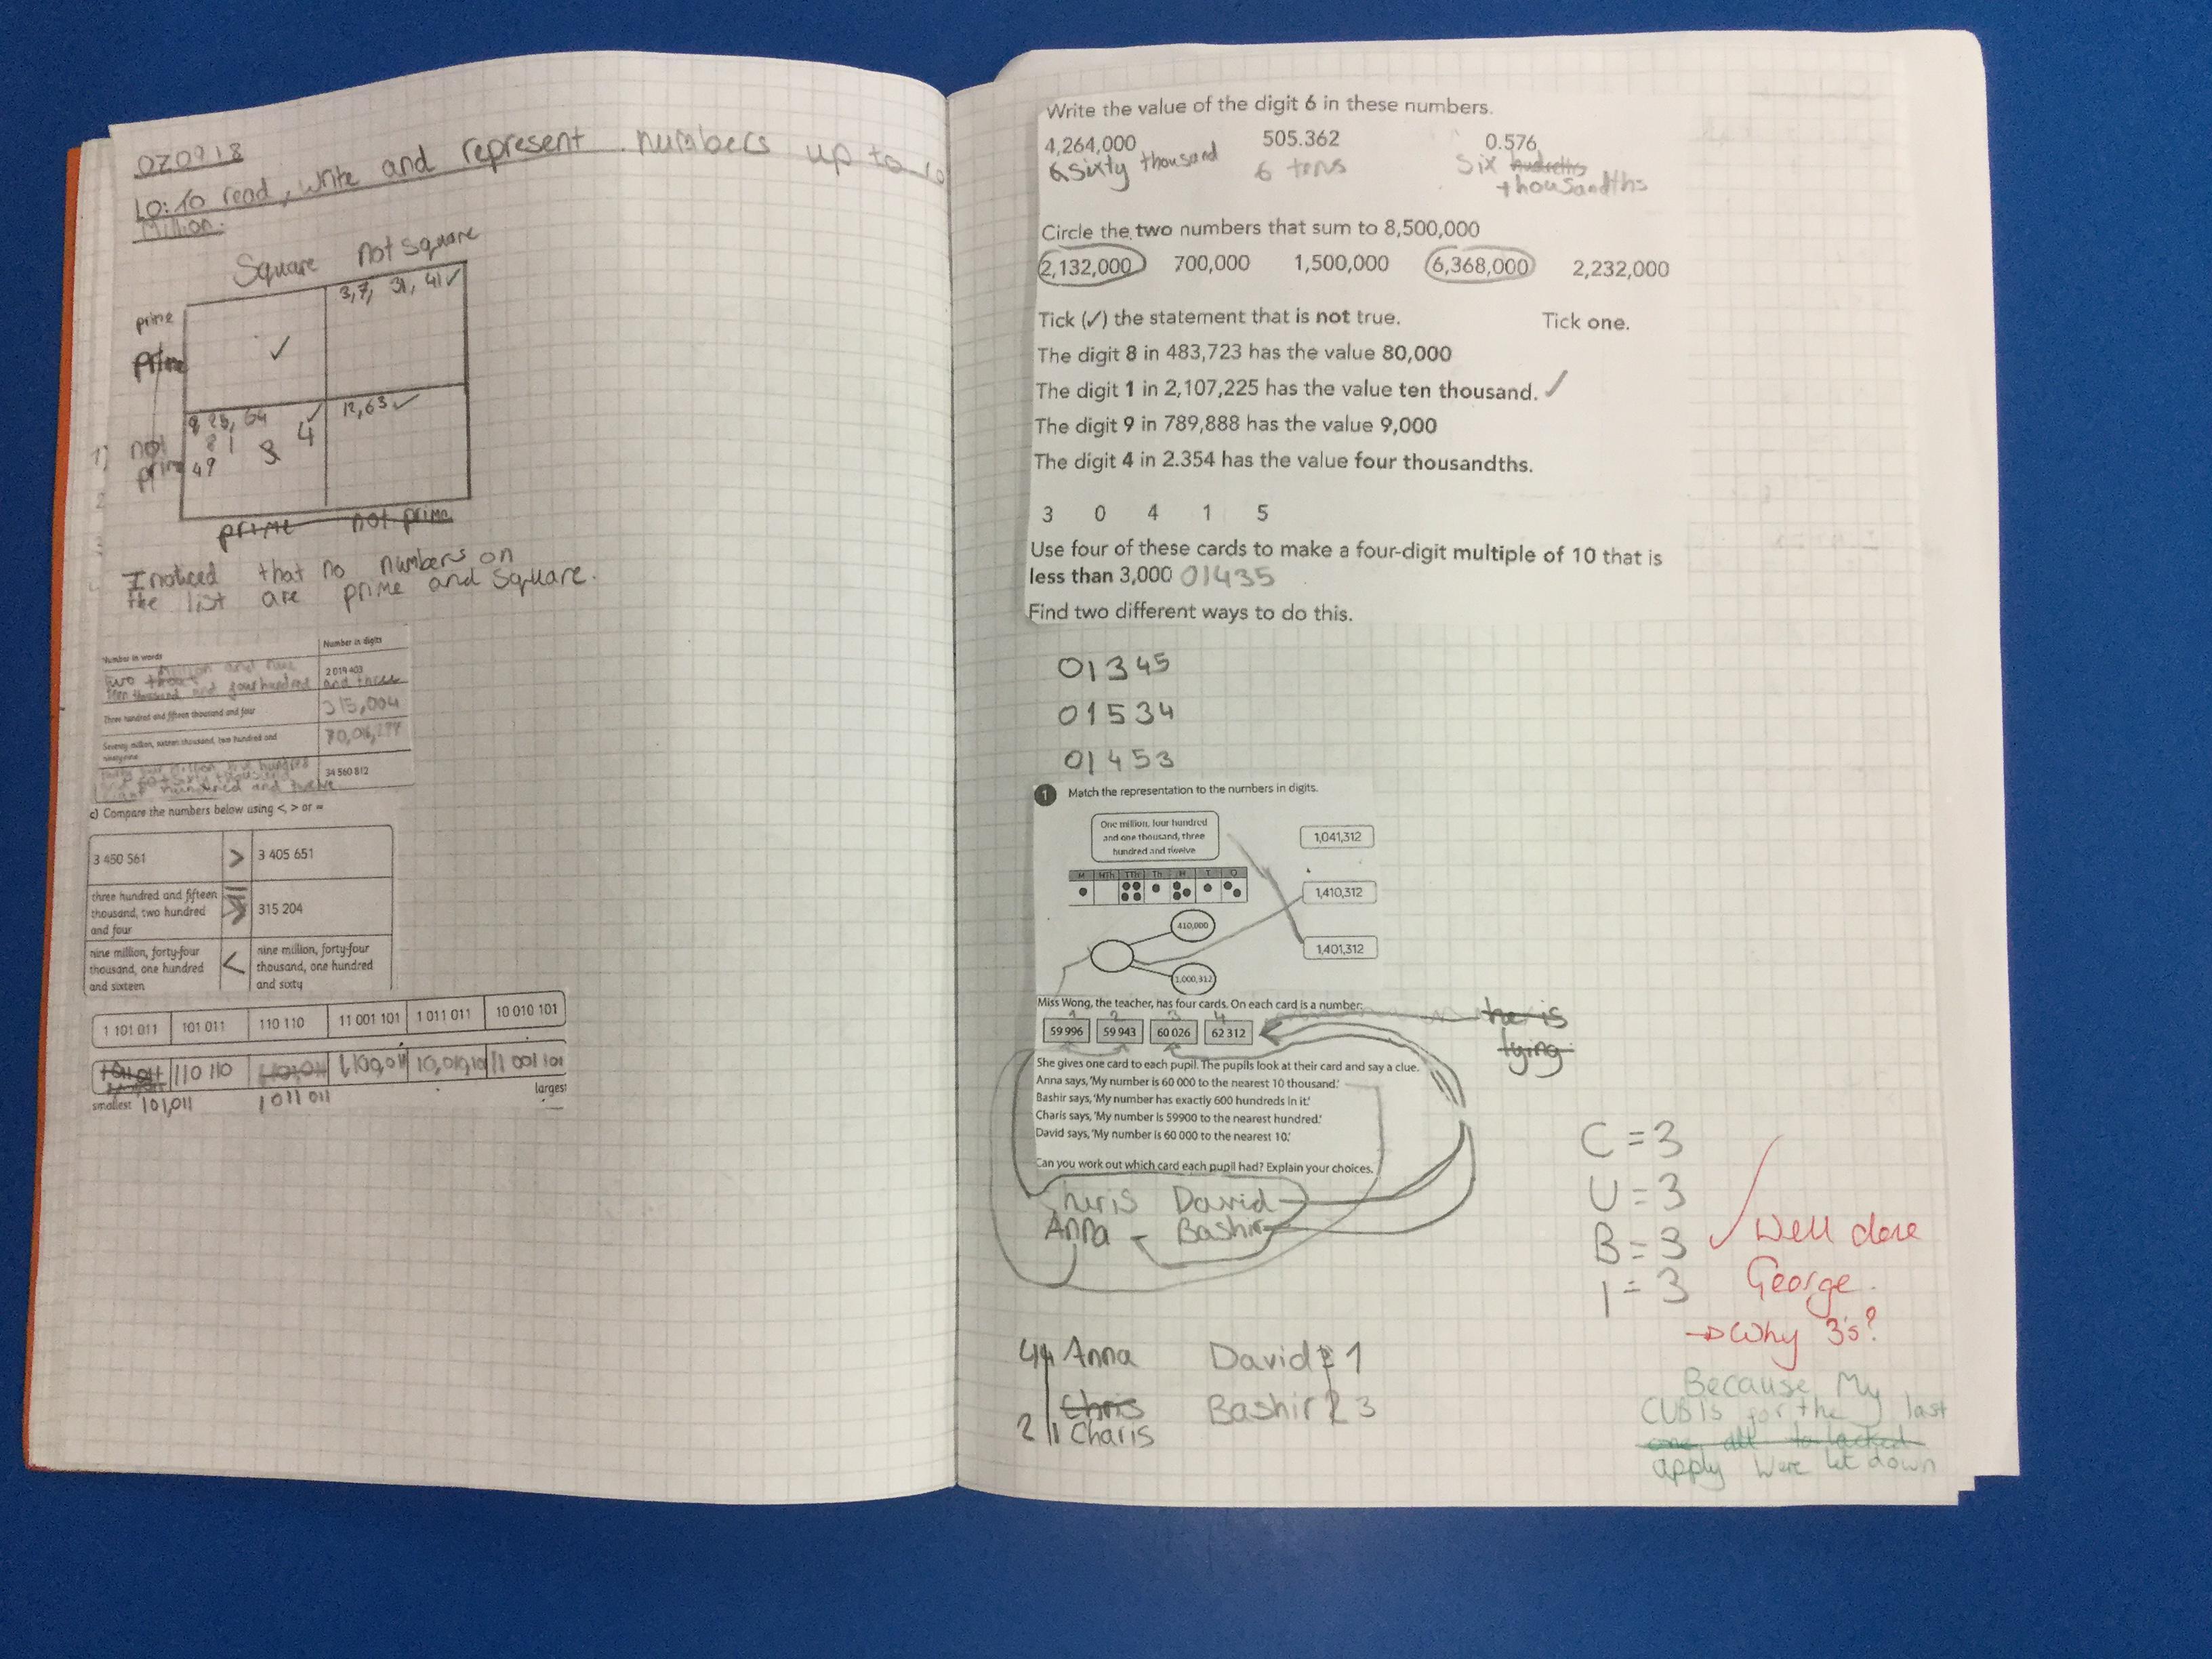 070918
LO: To read, write and represent numbers up to 10
Million.
Square not square
3,7, 31, 41 ✓
prime
prime
✓
9 25, 64 ✓
12, 63 ✓
81
4
not
prime
49
prime not prime
I noticed that no numbers on
the list are prime and square.
Number in words
Number in digits
two million and nine
teen thousand and four hundred and three
2 019 403
Three hundred and fifteen thousand and four
315,004
Seventy million, sixteen thousand, two hundred and
ninety-nine
34 560 812
hundred and twelve
c) Compare the numbers below using <, > or =
3 450 561 > 3 405 651
three hundred and fifteen
thousand, two hundred
and four
=
315 204
nine million, forty-four
thousand, one hundred
and sixteen
<
nine million, forty-four
thousand, one hundred
and sixty
1 101 011 101 011 110 110 11 001 101 1 011 011 10 010 101
110 110 11 001 101
smallest 101,011 1 011 011 largest
Write the value of the digit 6 in these numbers.
4,264,000 505.362 0.576
sixty thousand 6 tens six hudreths
thousandths
Circle the two numbers that sum to 8,500,000
2,132,000 700,000 1,500,000 6,368,000 2,232,000
Tick (✓) the statement that is not true. Tick one.
The digit 8 in 483,723 has the value 80,000
The digit 1 in 2,107,225 has the value ten thousand. ✓
The digit 9 in 789,888 has the value 9,000
The digit 4 in 2.354 has the value four thousandths.
3 0 4 1 5
Use four of these cards to make a four-digit multiple of 10 that is
less than 3,000 01435
Find two different ways to do this.
01345
01534
01453
1 Match the representation to the numbers in digits.
One million, four hundred
and one thousand, three
hundred and twelve
1,041,312
M HTh TTh Th H T O
1,410,312
410,000
1,401,312
1,000,312
Miss Wong, the teacher, has four cards. On each card is a number:
he is
lying
1 2 3 4
59 996 59 943 60 026 62 312
She gives one card to each pupil. The pupils look at their card and say a clue.
Anna says, 'My number is 60 000 to the nearest 10 thousand.'
Bashir says, 'My number has exactly 600 hundreds in it.'
Charis says, 'My number is 59900 to the nearest hundred.'
David says, 'My number is 60 000 to the nearest 10.'
Can you work out which card each pupil had? Explain your choices.
Chris David
Anna Bashir
C = 3
U = 3
B = 3
I = 3
✓ Well done
George.
→ Why 3's?
Because My
CUBIs for the last
apply were let down
4 Anna David 1
Chris Bashir 2 3
2 Charis